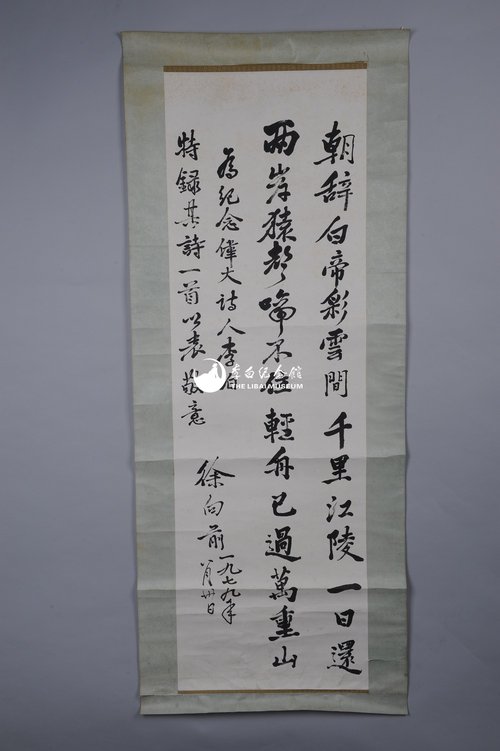 朝辞白帝彩雲間千里江陵一日還
两岸猿聲啼不住輕舟已過萬重山
為纪念偉大诗人李白
特録其詩一首以表敬意
徐向前一九七九年
月日
李白纪念馆
THE LIBAI MUSEUM